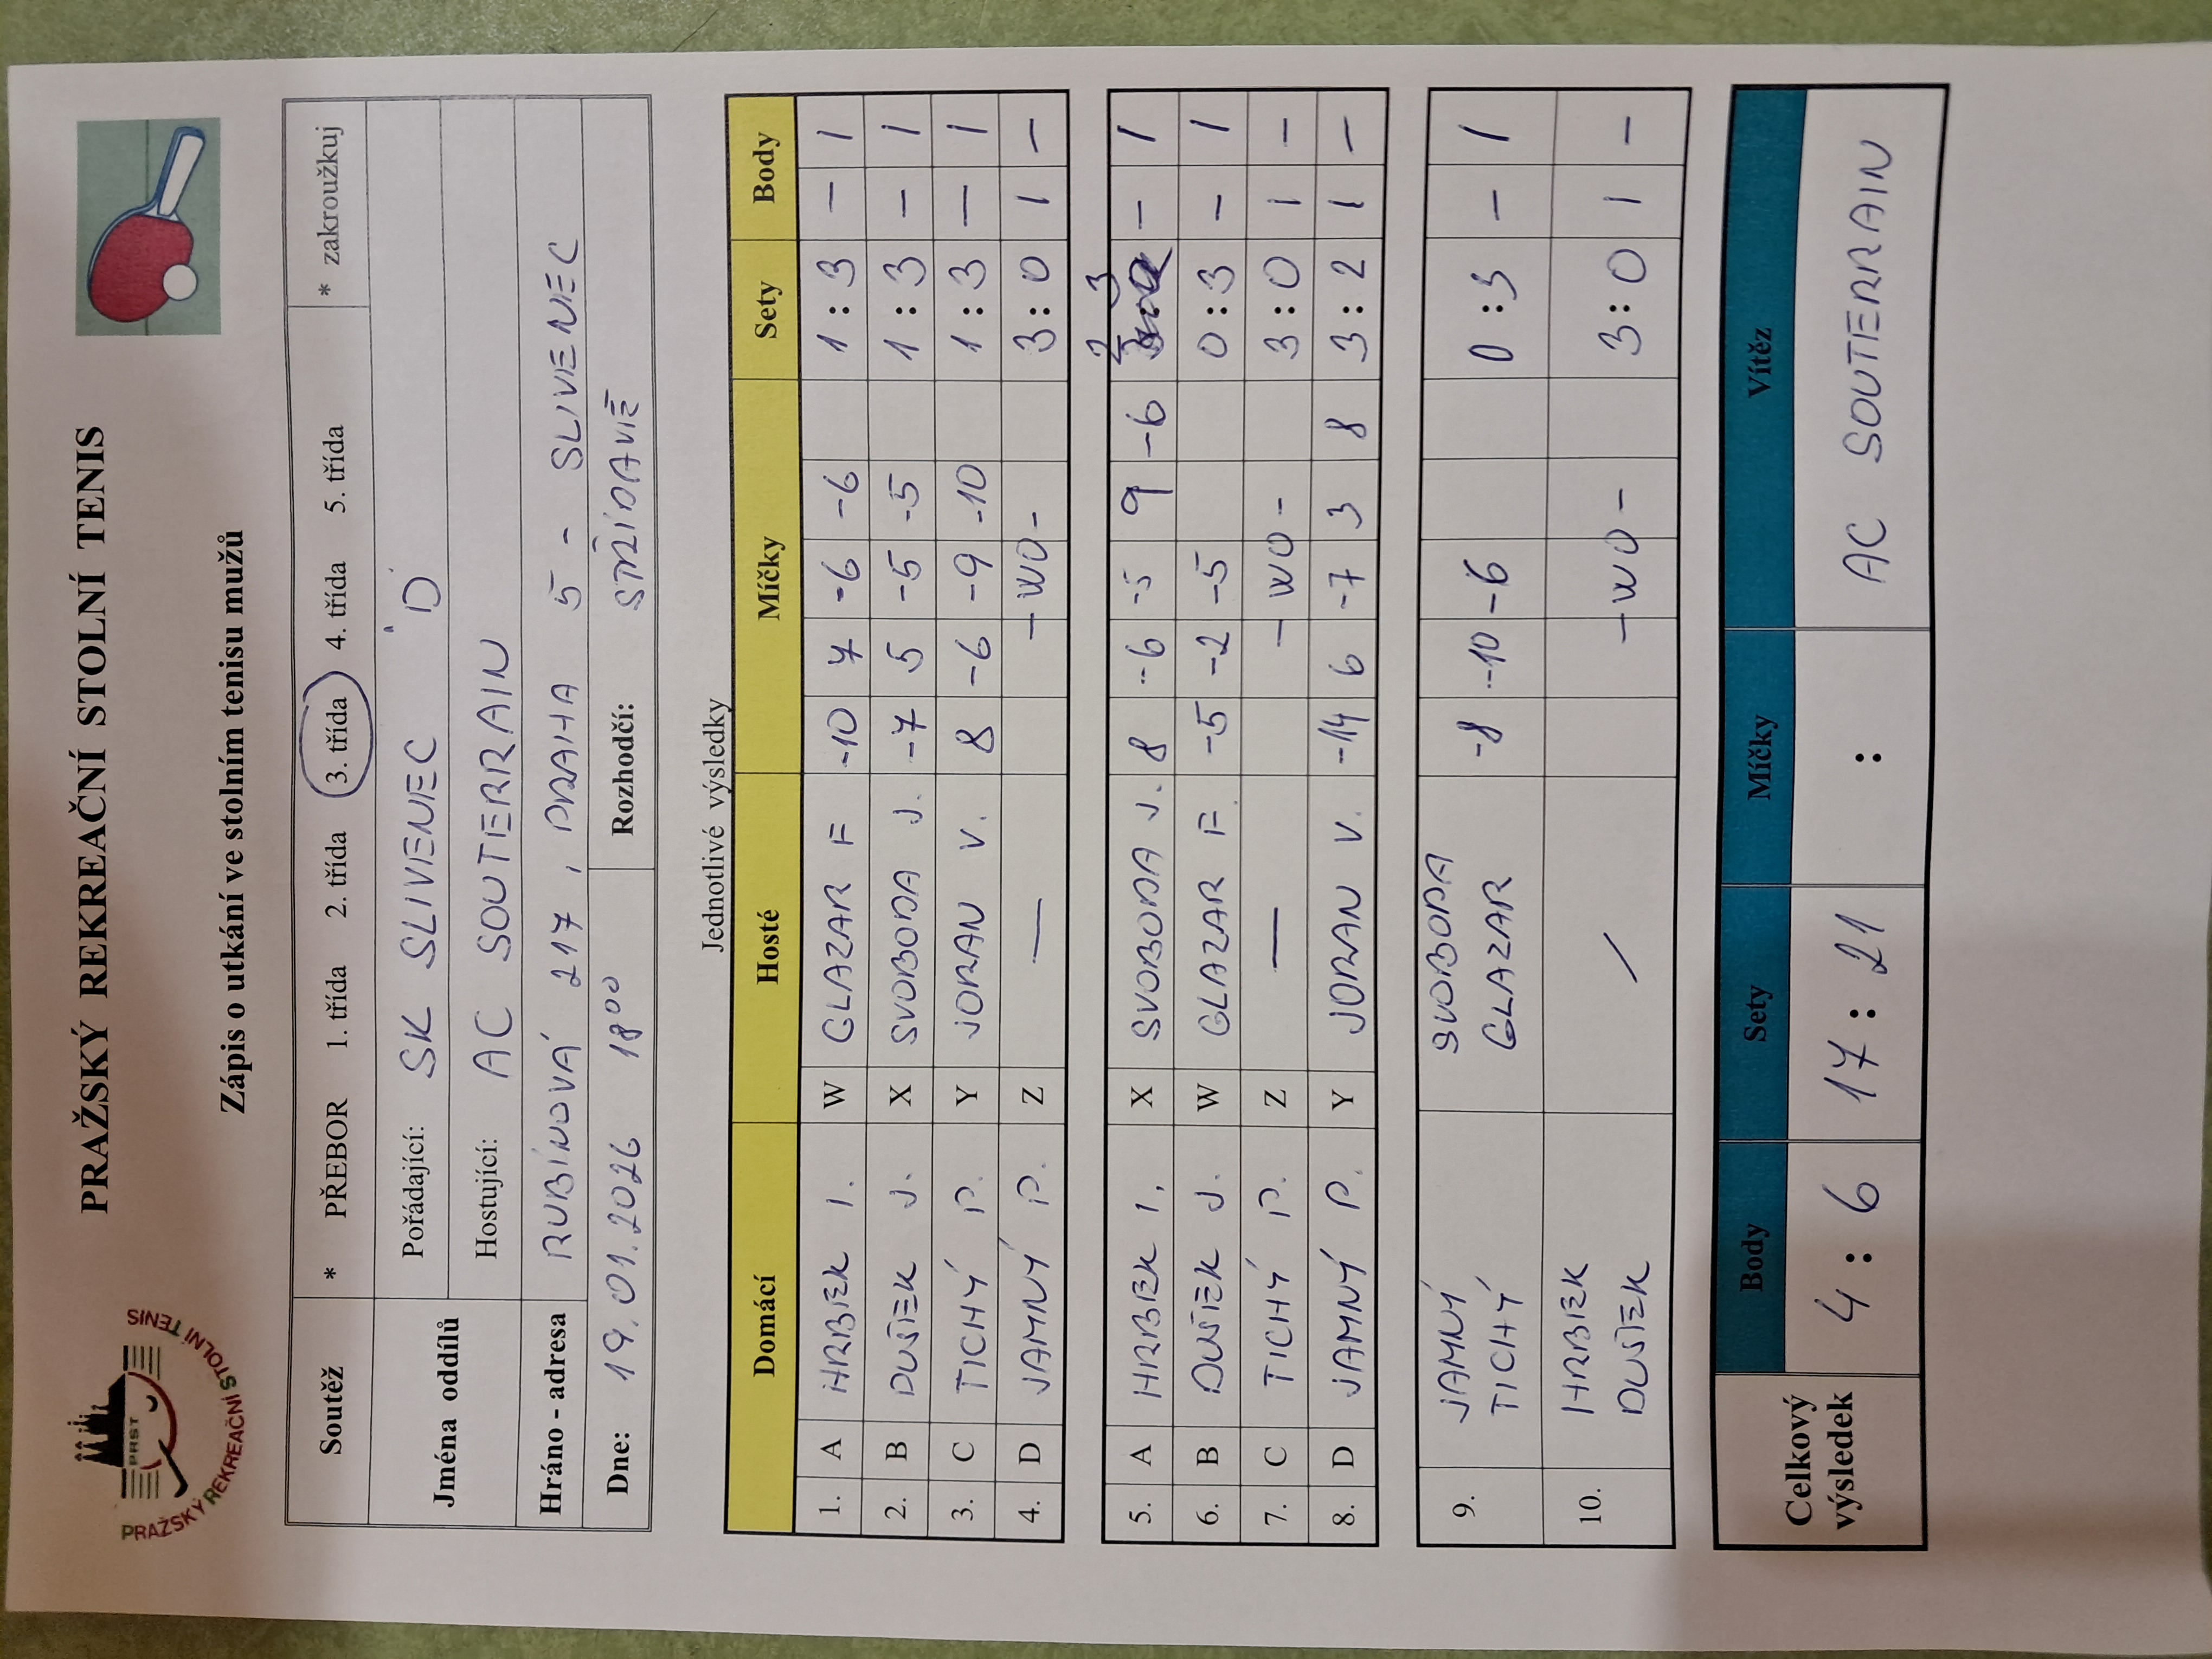 PRAŽSKÝ REKREAČNÍ STOLNÍ TENIS
PRST
PRAŽSKÝ REKREAČNÍ STOLNÍ TENIS
Zápis o utkání ve stolním tenisu mužů
Soutěž * PŘEBOR 1. třída 2. třída 3. třída 4. třída 5. třída * zakroužkuj
Jména oddílů Pořádající: SK SLIVENEC "D"
Hostující: AC SOUTERRAIN
Hráno - adresa RUBÍNOVÁ 217, PRAHA 5 - SLIVENEC
Dne: 19.01.2026 18⁰⁰ Rozhodčí: STŘÍDAVĚ
Jednotlivé výsledky
Domácí Hosté Míčky Sety Body
1. A HRBEK I. W GLAZAR F -10 7 -6 -6 1 : 3 – 1
2. B DUŠEK J. X SVOBODA J. -7 5 -5 -5 1 : 3 – 1
3. C TICHÝ P. Y JORAN V. 8 -6 -9 -10 1 : 3 – 1
4. D JAMNÝ P. Z — – WO – 3 : 0 1 –
5. A HRBEK I. X SVOBODA J. 8 -6 -5 9 -6 2 3 – 1
6. B DUŠEK J. W GLAZAR F. -5 -2 -5 0 : 3 – 1
7. C TICHÝ P. Z — – WO – 3 : 0 1 –
8. D JAMNÝ P. Y JORAN V. -14 6 -7 3 8 3 : 2 1 –
9. JAMNÝ SVOBODA -8 -10 -6 0 : 3 – 1
TICHÝ GLAZAR
10. HRBEK / – WO – 3 : 0 1 –
DUŠEK
Celkový výsledek Body Sety Míčky Vítěz
4 : 6 17 : 21 : AC SOUTERRAIN